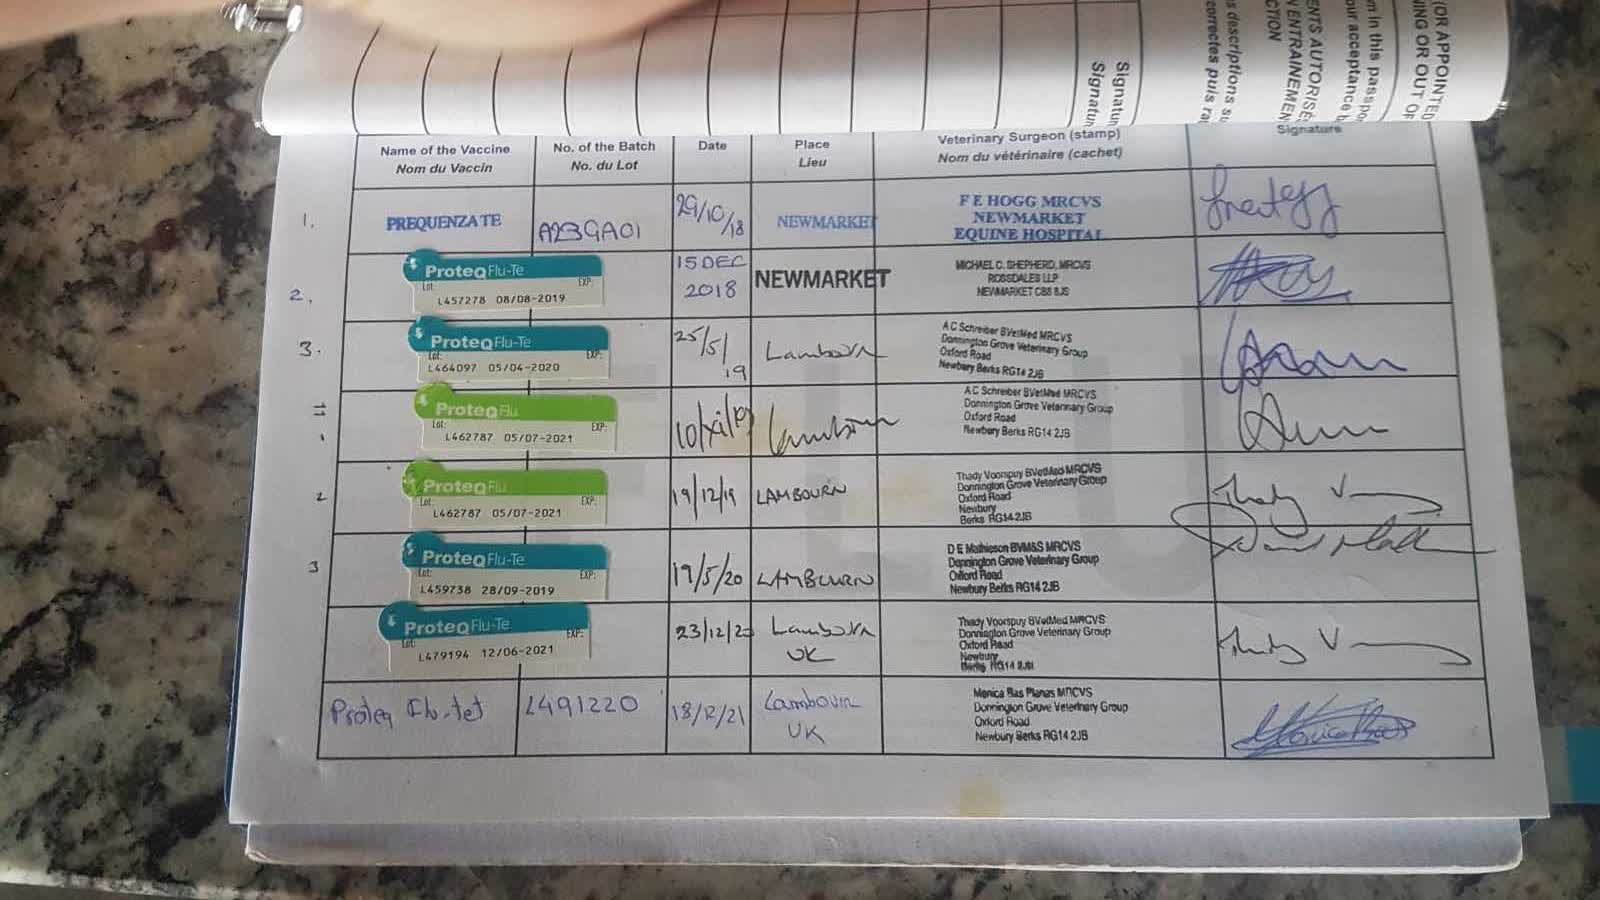 (OR APPOINTED
NING OR OUT OF
m in this passpo
our acceptance b
ENTS AUTORISÉ
N ENTRAINEMEN
CTION
s descriptions su
correctes puis ra
Signatur
Signatur
Name of the Vaccine
Nom du Vaccin
No. of the Batch
No. du Lot
Date
Place
Lieu
Veterinary Surgeon (stamp)
Nom du vétérinaire (cachet)
Signature
1.
PREQUENZA TE
A23GA01
29/10/18
NEWMARKET
F E HOGG MRCVS
NEWMARKET
EQUINE HOSPITAL
2.
ProteqFlu-Te
Lot:
EXP:
L457278 08/08-2019
15 DEC
2018
NEWMARKET
MICHAEL C. SHEPHERD, MRCVS
ROSSDALES LLP
NEWMARKET CB8 8JS
3.
ProteqFlu-Te
Lot:
EXP:
L464097 05/04-2020
25/5/
19
Lambourn
A C Schreiber BVetMed MRCVS
Donnington Grove Veterinary Group
Oxford Road
Newbury Berks RG14 2JB
ProteqFlu
Lot:
EXP:
L462787 05/07-2021
10/xi/19
Lambourn
A C Schreiber BVetMed MRCVS
Donnington Grove Veterinary Group
Oxford Road
Newbury Berks RG14 2JB
2
ProteqFlu
Lot:
EXP:
L462787 05/07-2021
19/12/19
LAMBOURN
Thady Voorspuy BVetMed MRCVS
Donnington Grove Veterinary Group
Oxford Road
Newbury
Berks RG14 2JB
Thady V
3
ProteqFlu-Te
Lot:
EXP:
L459738 28/09-2019
19/5/20
LAMBOURN
D E Mathieson BVM&S MRCVS
Donnington Grove Veterinary Group
Oxford Road
Newbury Berks RG14 2JB
ProteqFlu-Te
Lot:
EXP:
L479194 12/06-2021
23/12/20
Lambourn
UK
Thady Voorspuy BVetMed MRCVS
Donnington Grove Veterinary Group
Oxford Road
Newbury
Berks RG14 2JB
Thady V
Proteq Flu-tet
L491220
18/12/21
Lambourn
UK
Monica Bas Planas MRCVS
Donnington Grove Veterinary Group
Oxford Road
Newbury Berks RG14 2JB